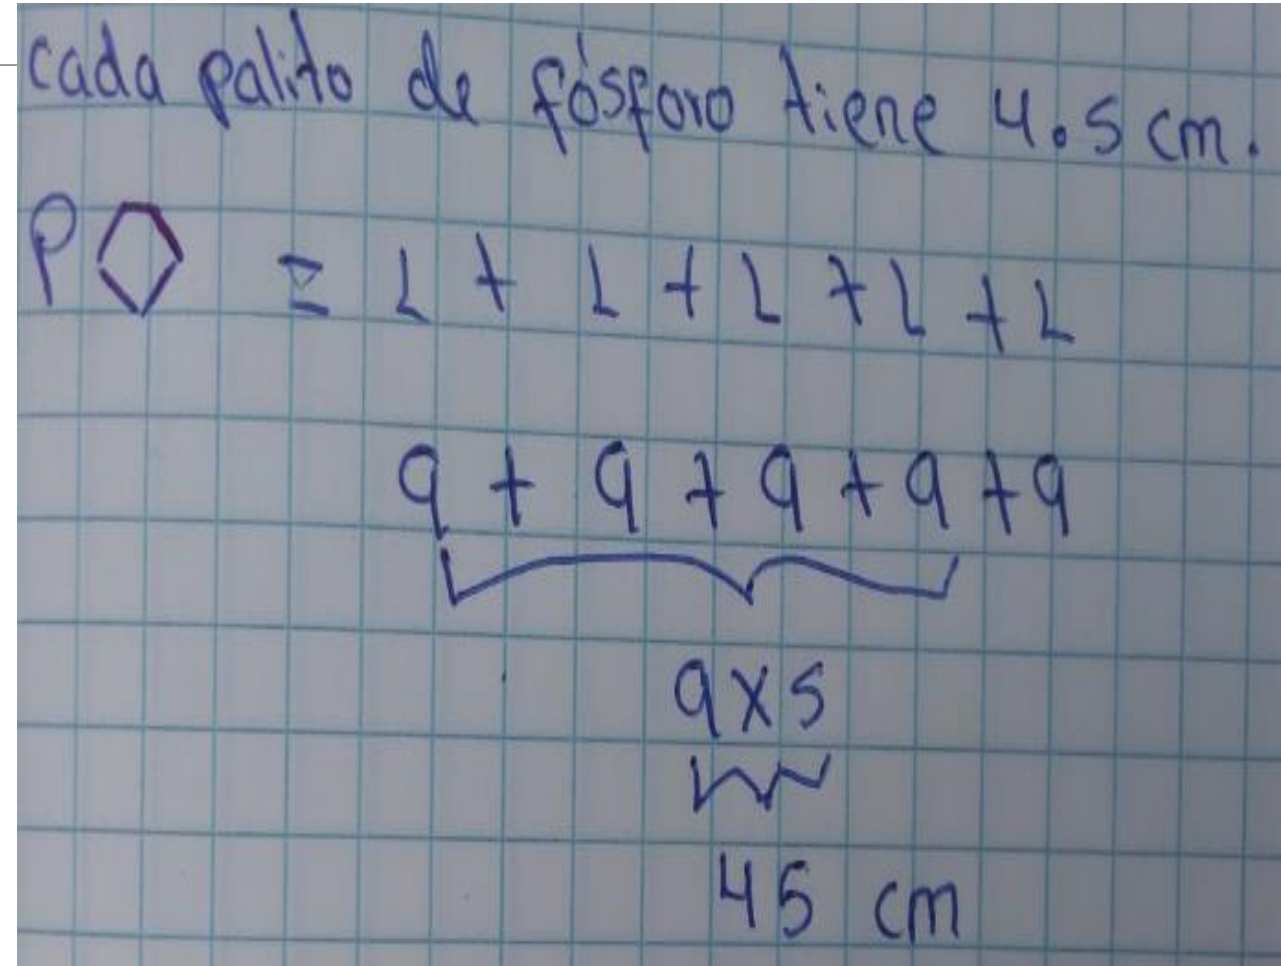 cada palito de fósforo tiene 4.5 cm.
P = L + L + L + L + L
9 + 9 + 9 + 9 + 9
9x5
45 cm